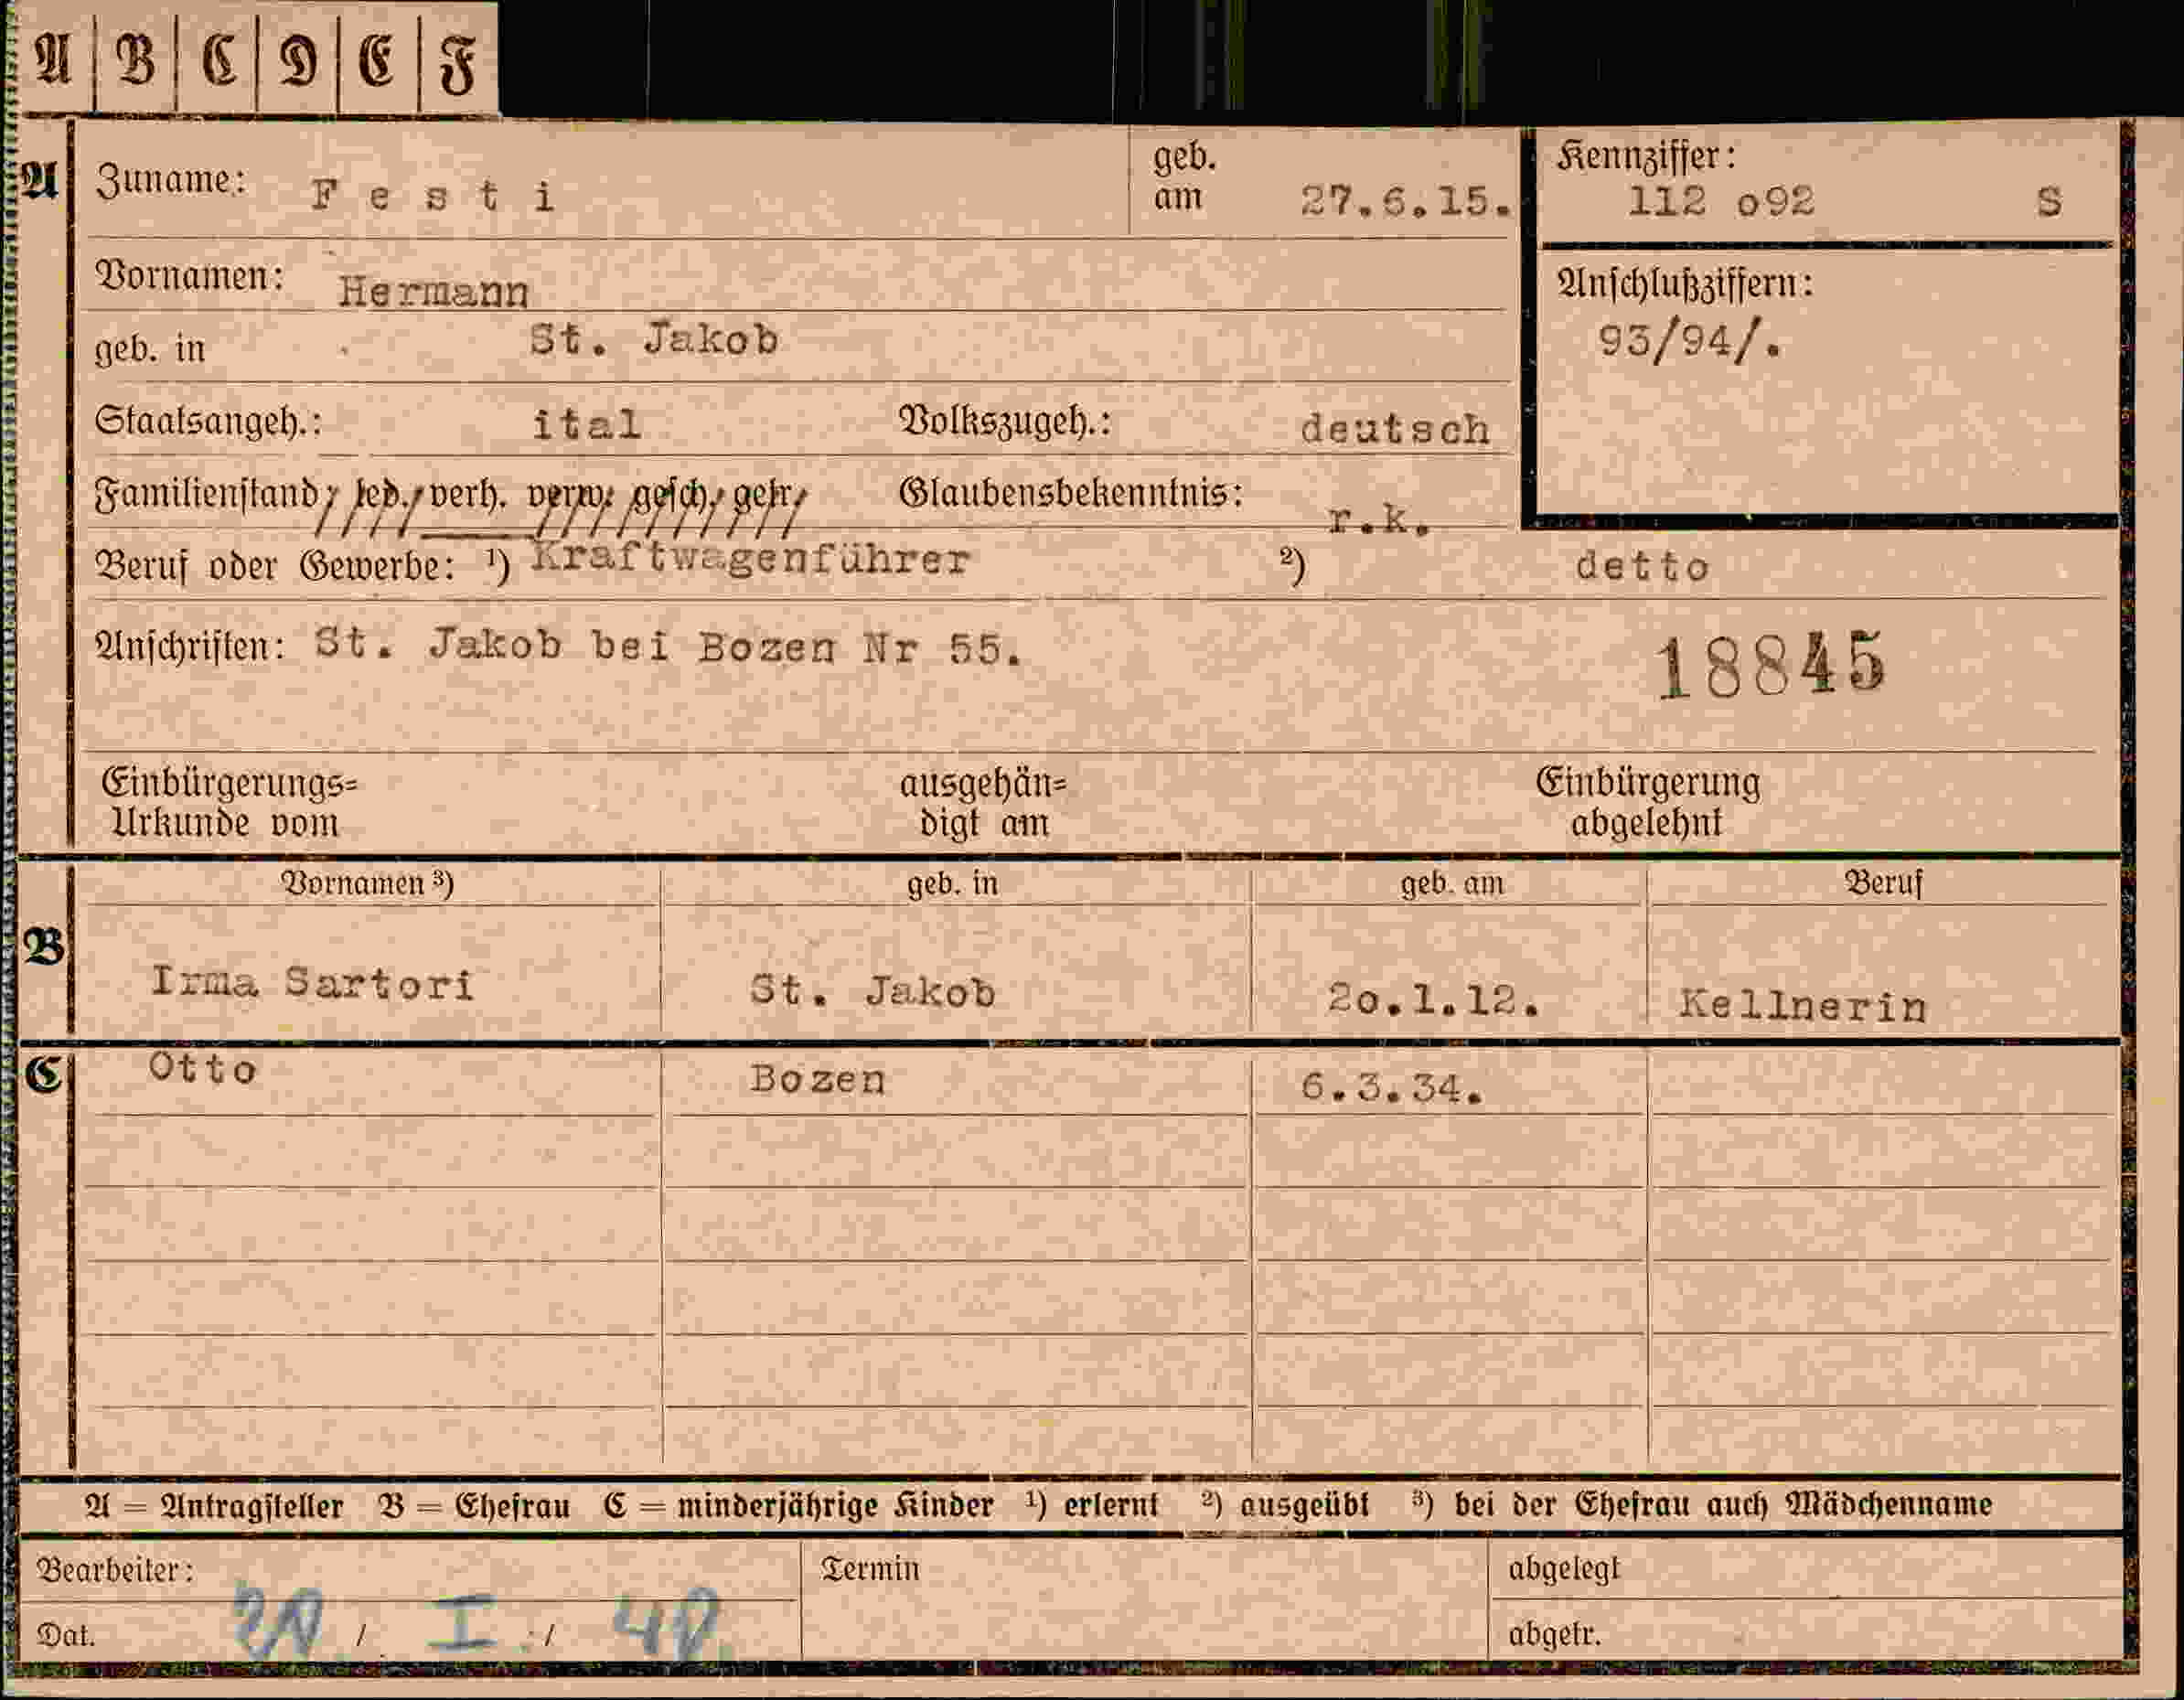 A B C D E F
A Zuname: Festi geb. am 27.6.15. Kennziffer: 112 o92 S
Vornamen: Hermann Anschlußziffern:
geb. in St. Jakob 93/94/.
Staatsangeh.: ital Volkszugeh.: deutsch
Familienstand: led. verh. verw. gesch. getr. Glaubensbekenntnis: r.k.
Beruf oder Gewerbe: ¹) Kraftwagenführer ²) detto
Anschriften: St. Jakob bei Bozen Nr 55. 18845
Einbürgerungs= ausgehän= Einbürgerung
Urkunde vom digt am abgelehnt
B Vornamen ³) geb. in geb. am Beruf
Irma Sartori St. Jakob 2o.1.12. Kellnerin
C Otto Bozen 6.3.34.
A = Antragsteller B = Ehefrau C = minderjährige Kinder ¹) erlernt ²) ausgeübt ³) bei der Ehefrau auch Mädchenname
Bearbeiter: Termin abgelegt
Dat. / I / 40 abgetr.